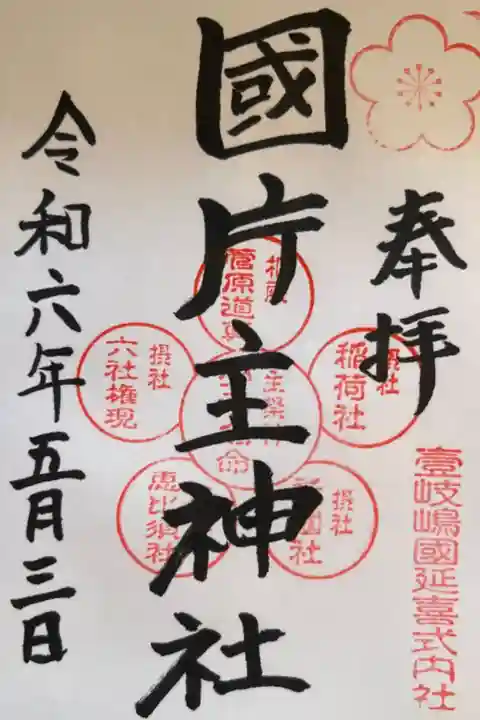 奉拝
壹岐嶋國延喜式内社
國片主神社
菅原道真
摂社
稲荷社
摂社
六社権現
摂社
恵比須社
摂社
令和六年五月三日